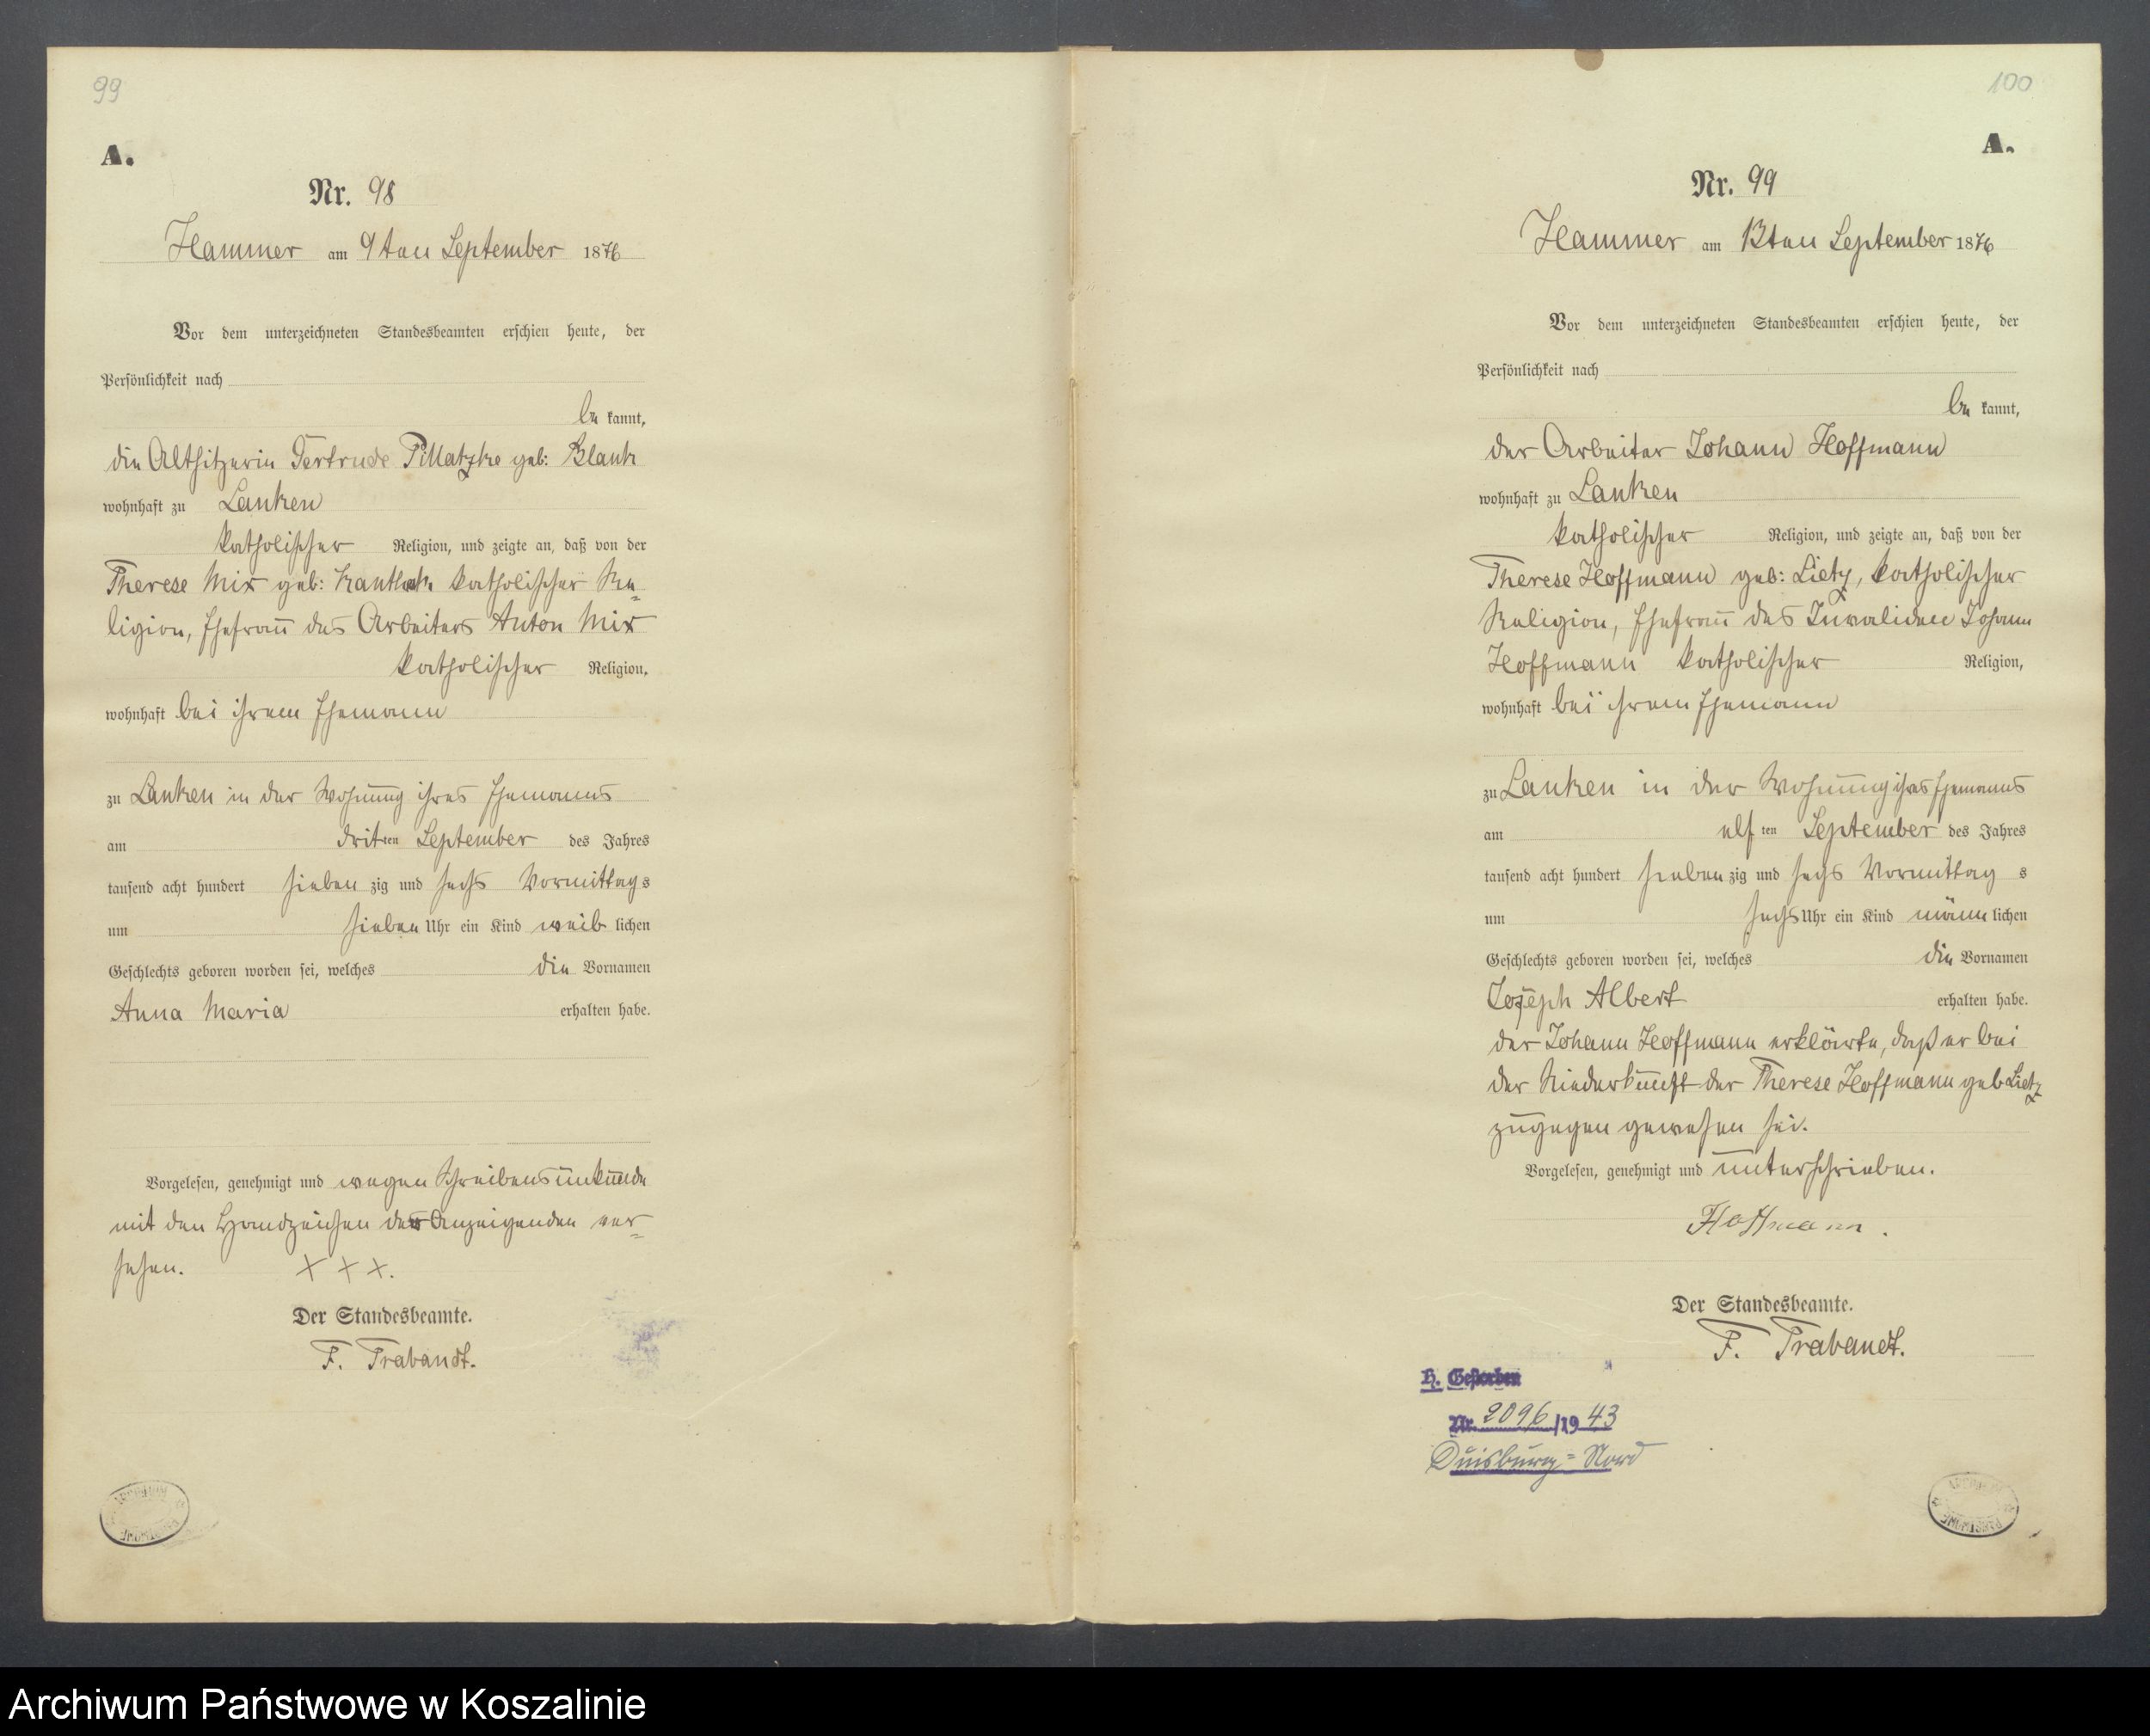 99
A.
Nr. 98
Hammer am 9ten September 1876
Vor dem unterzeichneten Standesbeamten erschien heute, der
Persönlichkeit nach
be kannt,
die Altsitzerin Gertrude Pillatzke geb: Blank
wohnhaft zu Lanken
katholischer Religion, und zeigte an, daß von der
Therese Mix geb: katholischer Re=
ligion, Ehefrau des Arbeiters Anton Mix
katholischer Religion,
wohnhaft bei ihrem Ehemann
zu Lanken in der Wohnung ihres Ehemanns
am dritten September des Jahres
tausend acht hundert sieben zig und sechs Vormittags
um sieben Uhr ein Kind weib lichen
Geschlechts geboren worden sei, welches die Vornamen
Anna Maria erhalten habe.
Vorgelesen, genehmigt und wegen Schreibensunkunde
mit den Handzeichen der Anzeigenden ver=
sehen. X X X.
Der Standesbeamte.
F. Trabandt.
100
A.
Nr. 99
Hammer am 13ten September 1876
Vor dem unterzeichneten Standesbeamten erschien heute, der
Persönlichkeit nach
be kannt,
der Arbeiter Johann Hoffmann
wohnhaft zu Lanken
katholischer Religion, und zeigte an, daß von der
Therese Hoffmann geb: Lietz, katholischer
Religion, Ehefrau des Invaliden Johann
Hoffmann katholischer Religion,
wohnhaft bei ihrem Ehemann
zu Lanken in der Wohnung ihres Ehemanns
am elf ten September des Jahres
tausend acht hundert sieben zig und sechs Vormittag s
um sechs Uhr ein Kind männ lichen
Geschlechts geboren worden sei, welches die Vornamen
Joseph Albert erhalten habe.
der Johann Hoffmann erklärte, daß er bei
der Niederkunft der Therese Hoffmann geb Lietz
zugegen gewesen sei.
Vorgelesen, genehmigt und unterschrieben.
Hoffmann.
Der Standesbeamte.
F. Trabandt.
H. Gestorben
Nr. 2096/1943
Duisburg=Nord
Archiwum Państwowe w Koszalinie